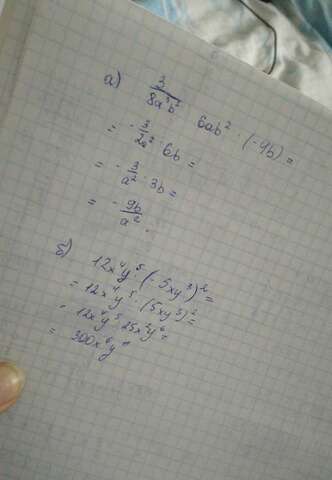 а) 3/(8a³b²) 6ab² · (-9b) =
= - 3/(2a²) · 6b =
= - 3/a² · 3b =
= - 9b/a².
б) 12x⁴y⁵ · (-5xy³)² =
= 12x⁴y⁵ · (5xy³)² =
= 12x⁴y⁵ · 25x²y⁶ =
= 300x⁶y¹¹